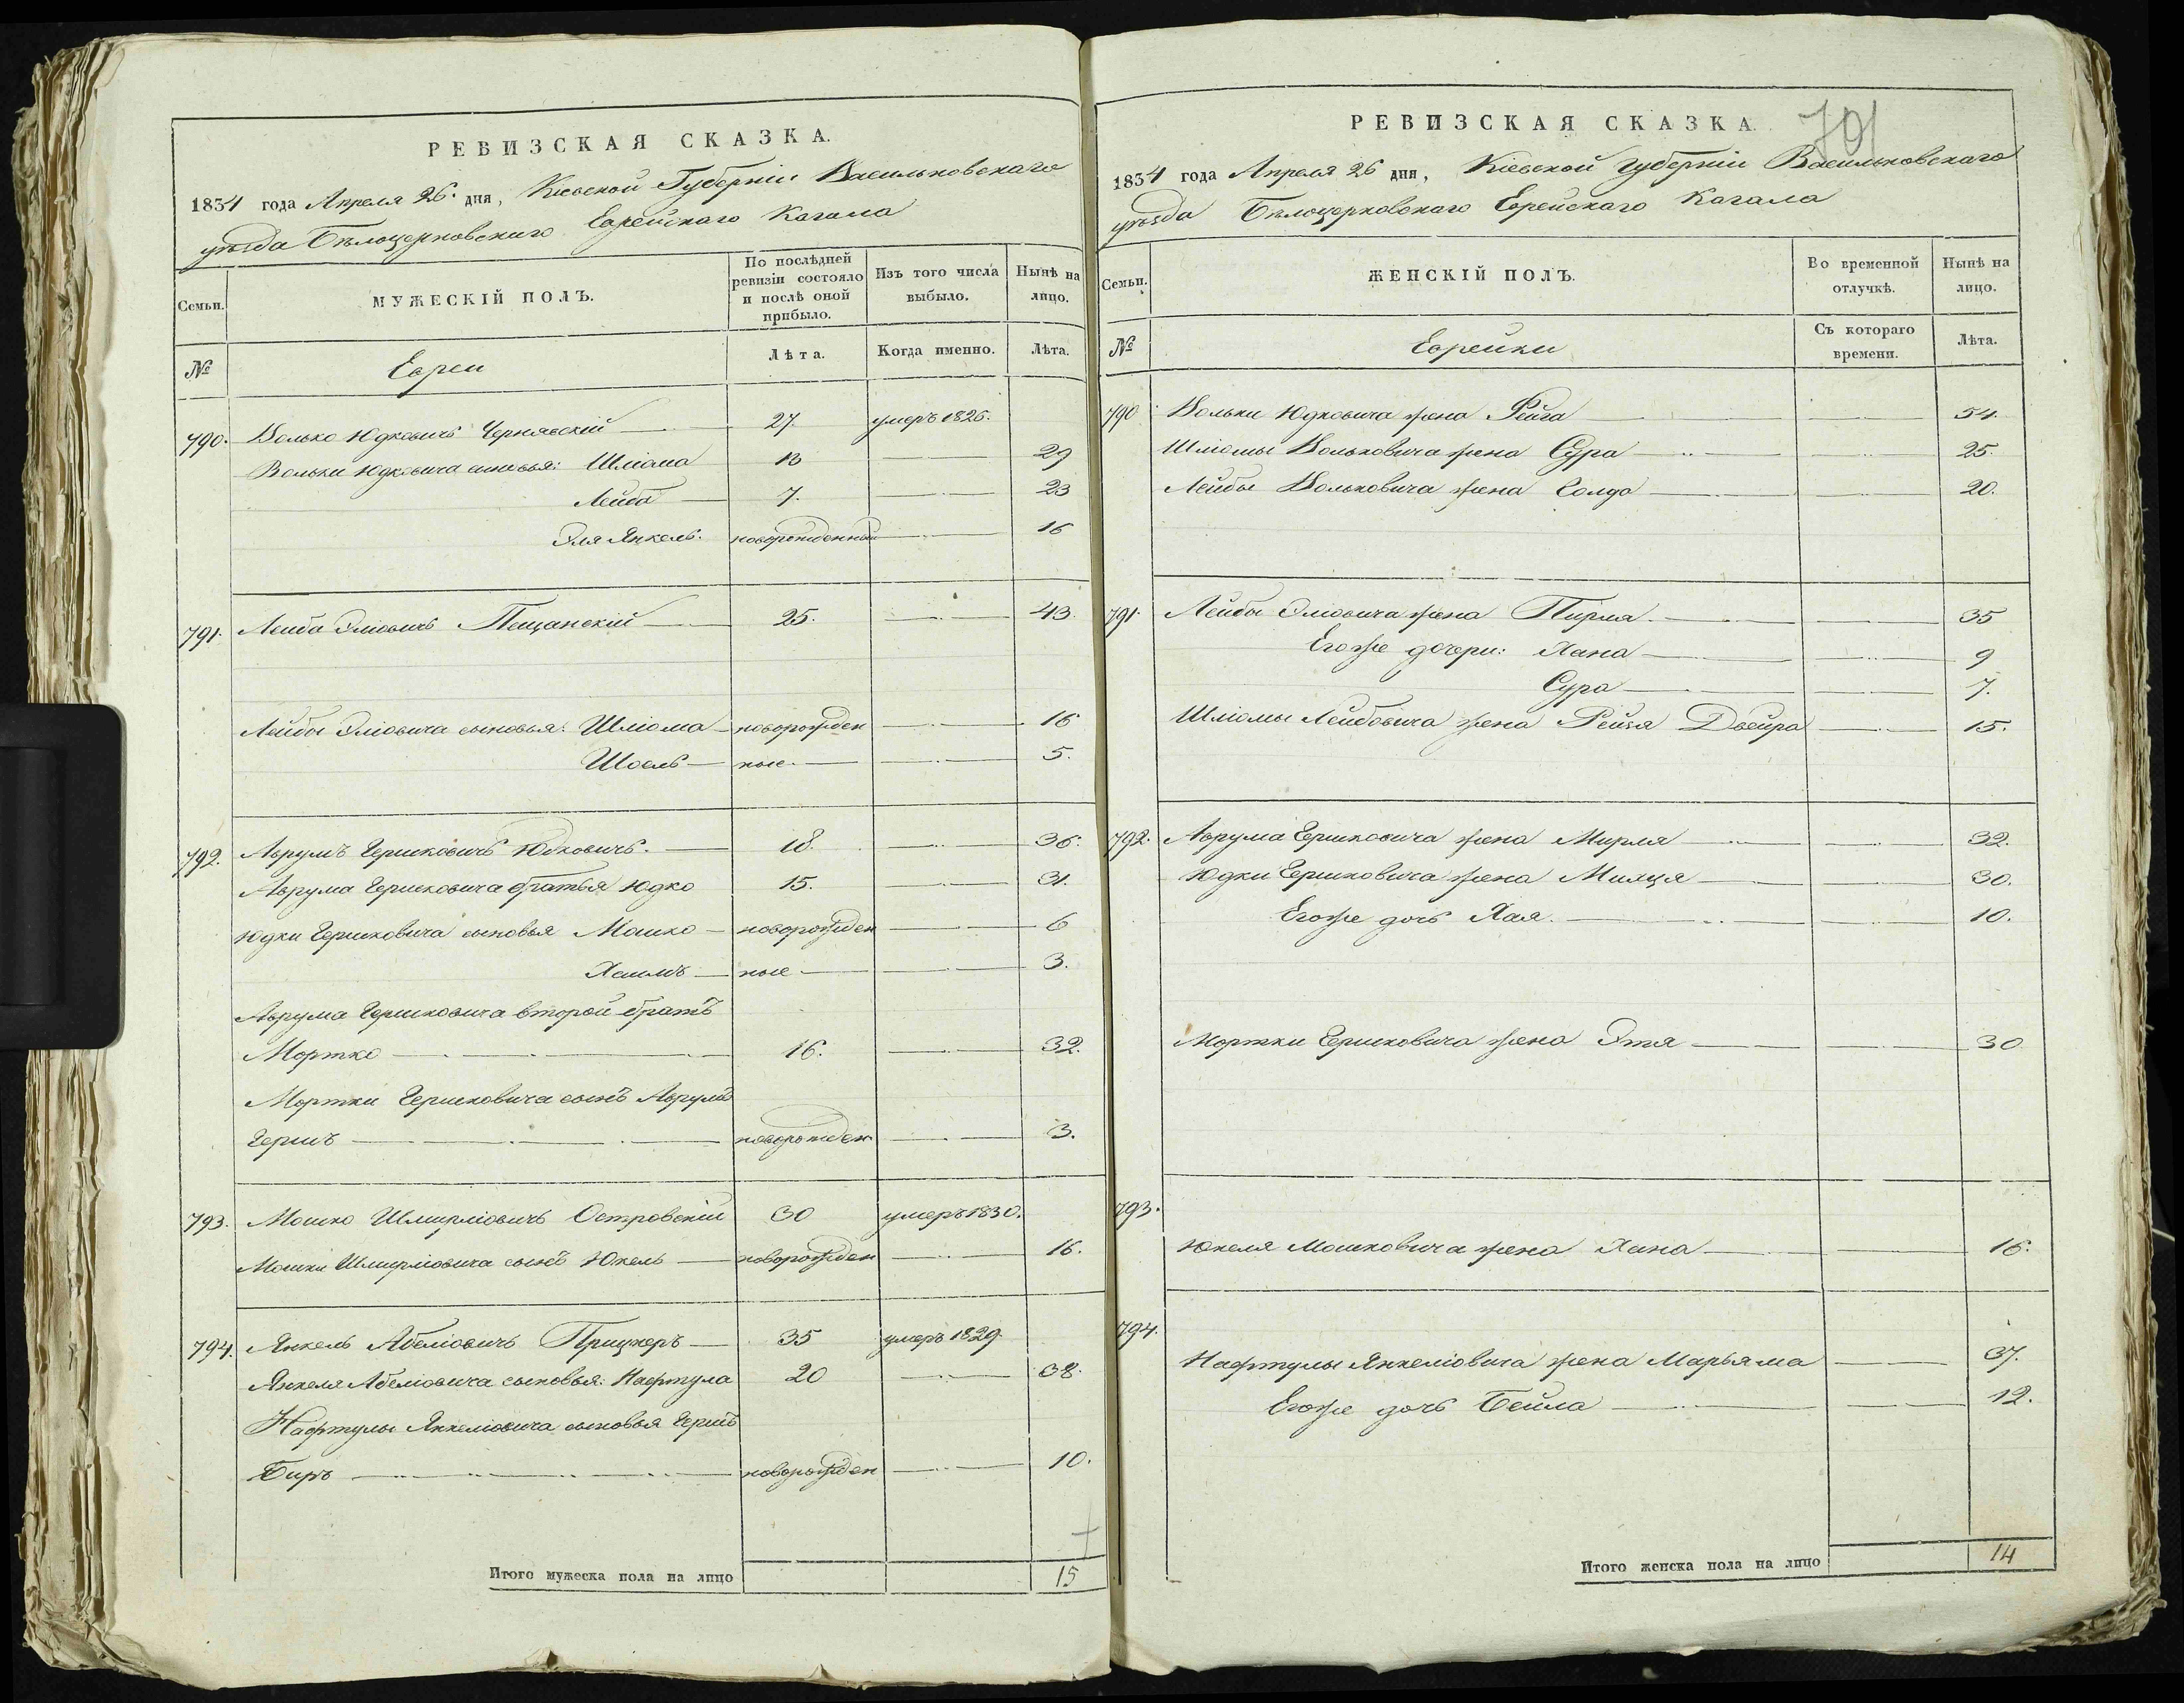 РЕВИЗСКАЯ СКАЗКА.
1834 года Апреля 26. дня, Кіевской Губерніи Васильковскаго
уѣзда Бѣлоцерковскаго Еврейскаго Кагала
Семьи.
МУЖЕСКІЙ ПОЛЪ.
По послѣдней ревизіи состояло и послѣ оной прибыло.
Изъ того числа выбыло.
Нынѣ на лицо.
№
Евреи
Лѣта.
Когда именно.
Лѣта.
790. Волько Юдковичъ Чернявскій 27. умеръ 1826.
Вольки Юдковича сыновья: Шліома 13 29
Лейба 7. 23
Эля Янкель. новорожденный 16
791. Лейба Эліовичъ Пещанскій 25. 43.
Лейбы Эліовича сыновья: Шліома новорожден 16
Шоель ные. 5.
792. Аврумъ Гершковичъ Юдковичъ. 18. 36.
Аврума Гершковича братья Юдко 15. 31.
Юдки Гершковича сыновья Мошко новорожден 6
Хаимъ ные 3.
Аврума Гершковича второй братъ
Мортко 16. 32.
Мортки Гершковича сынъ Аврумъ
Гершъ новорожден 3.
793. Мошко Шмирліовичъ Островскій 30 умеръ 1830.
Мошки Шмирліовича сынъ Юкель новорожден 16.
794. Янкель Абеліовичъ Прицкеръ 35 умеръ 1829.
Янкеля Абеліовича сыновья: Нафтула 20 38.
Нафтулы Янкеліовича сыновья Гершъ
Биръ новорожден 10.
Итого мужеска пола на лицо 15
РЕВИЗСКАЯ СКАЗКА. 701
1834 года Апреля 26 дня, Кіевской Губерніи Васильковскаго
уѣзда Бѣлоцерковскаго Еврейскаго Кагала
Семьи.
ЖЕНСКІЙ ПОЛЪ.
Во временной отлучкѣ.
Нынѣ на лицо.
№
Еврейки
Съ котораго времени.
Лѣта.
790 Вольки Юдковича жена Рейза 54.
Шліомы Вольковича жена Сура 25.
Лейбы Вольковича жена Солда 20.
791. Лейбы Эліовича жена Пирля. 35
Егоже дочери: Хана 9
Сура 7.
Шліомы Лейбовича жена Рейзя Двейра 15.
792. Аврума Гершковича жена Мирля 32.
Юдки Гершковича жена Милця 30.
Егоже дочь Хая. 10.
Мортки Гершковича жена Этя 30
793.
Юкеля Мошковича жена Хана 16.
794.
Нафтулы Янкеліовича жена Марьяма 37.
Егоже дочь Бейла 12.
Итого женска пола на лицо 14